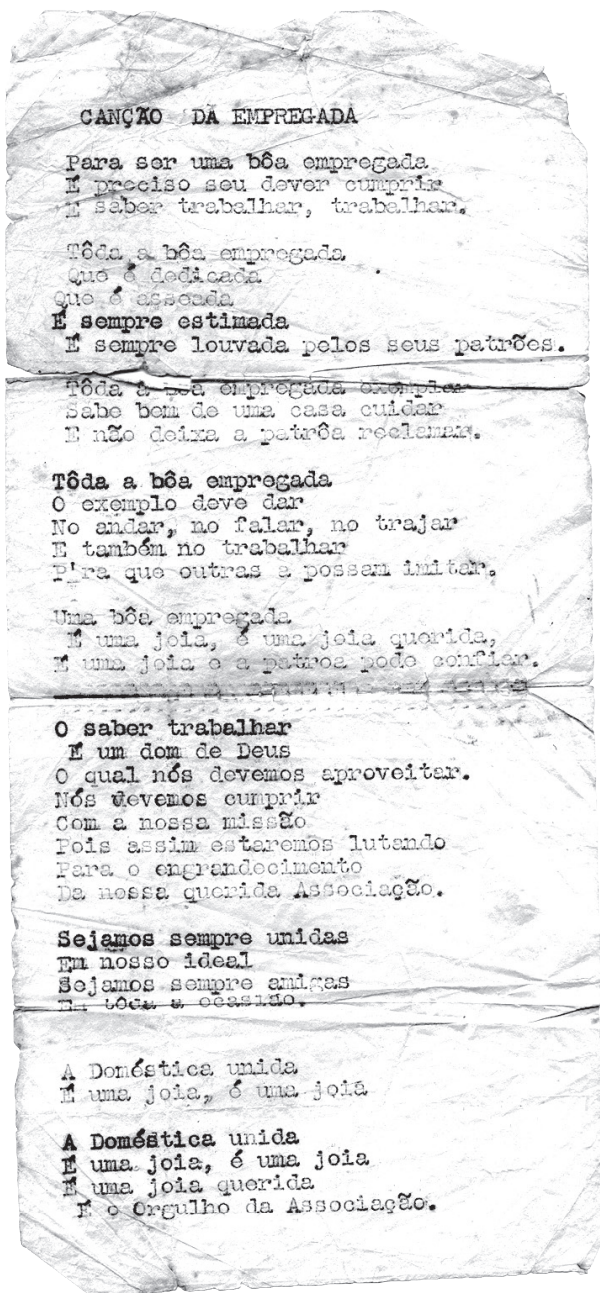 CANÇÃO DA EMPREGADA
Para ser uma bôa empregada
É preciso seu dever cumprir
E saber trabalhar, trabalhar.
Tôda a bôa empregada
Que é dedicada
Que é asseada
É sempre estimada
É sempre louvada pelos seus patrões.
Tôda a bôa empregada exemplar
Sabe bem de uma casa cuidar
E não deixa a patrôa reclamar.
Tôda a bôa empregada
O exemplo deve dar
No andar, no falar, no trajar
E também no trabalhar
P'ra que outras a possam imitar.
Uma bôa empregada
É uma joia, é uma joia querida,
É uma joia e a patroa pode confiar.
O saber trabalhar
É um dom de Deus
O qual nós devemos aproveitar.
Nós devemos cumprir
Com a nossa missão
Pois assim estaremos lutando
Para o engrandecimento
Da nossa querida Associação.
Sejamos sempre unidas
Em nosso ideal
Sejamos sempre amigas
Em tôda a ocasião.
A Doméstica unida
É uma joia, é uma joia
A Doméstica unida
É uma joia, é uma joia
É uma joia querida
É o Orgulho da Associação.